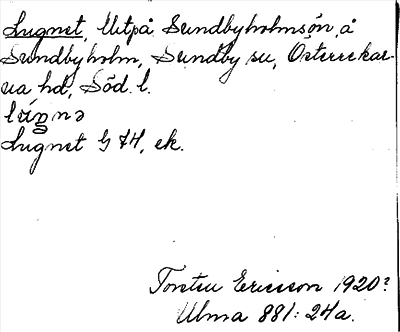 Lugnet, Utpå Sundbyholmsön, å
Sundbyholm, Sundby sn, Österrekar-
na hd, Söd. l.
Lugnet G 74, ek.
Torsten Ericsson 1920?
Ulma 881: 24a.